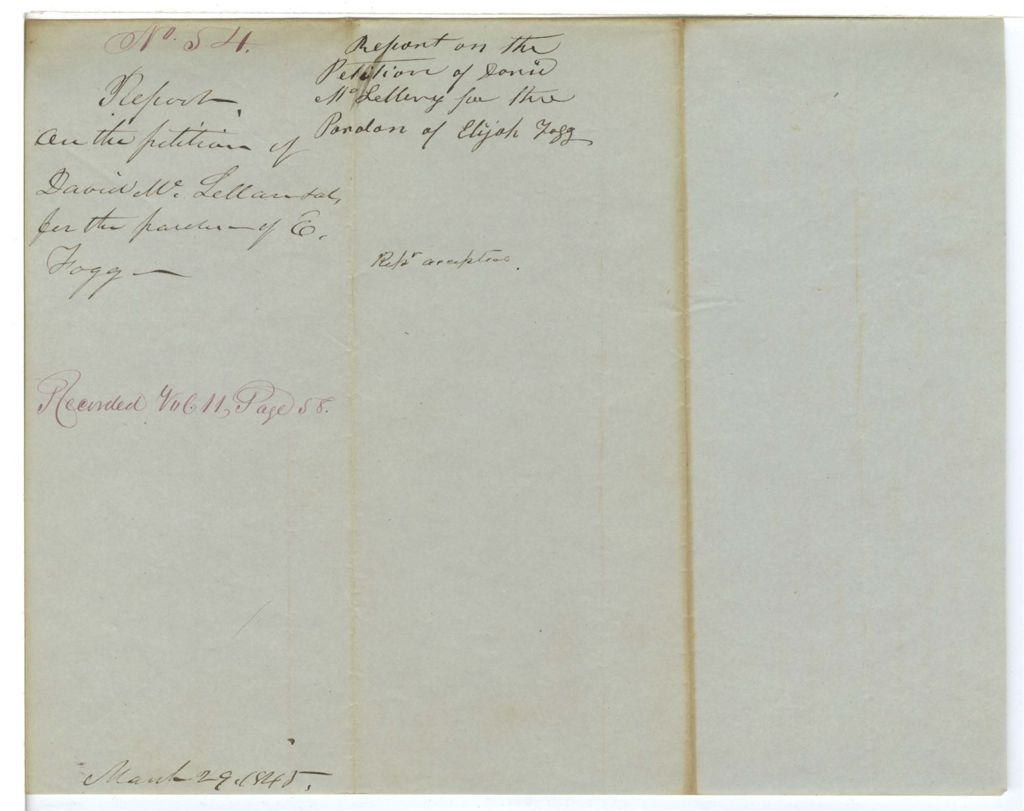 No. 54.
Report
On the petition of
David Mc. Lellan & als,
for the pardon of E.
Fogg
Recorded Vol 11, Page 58.
March 29, 1845.
Report on the
Petition of David
Mc Lellery for the
Pardon of Elijah Fogg
Rept. accepted.